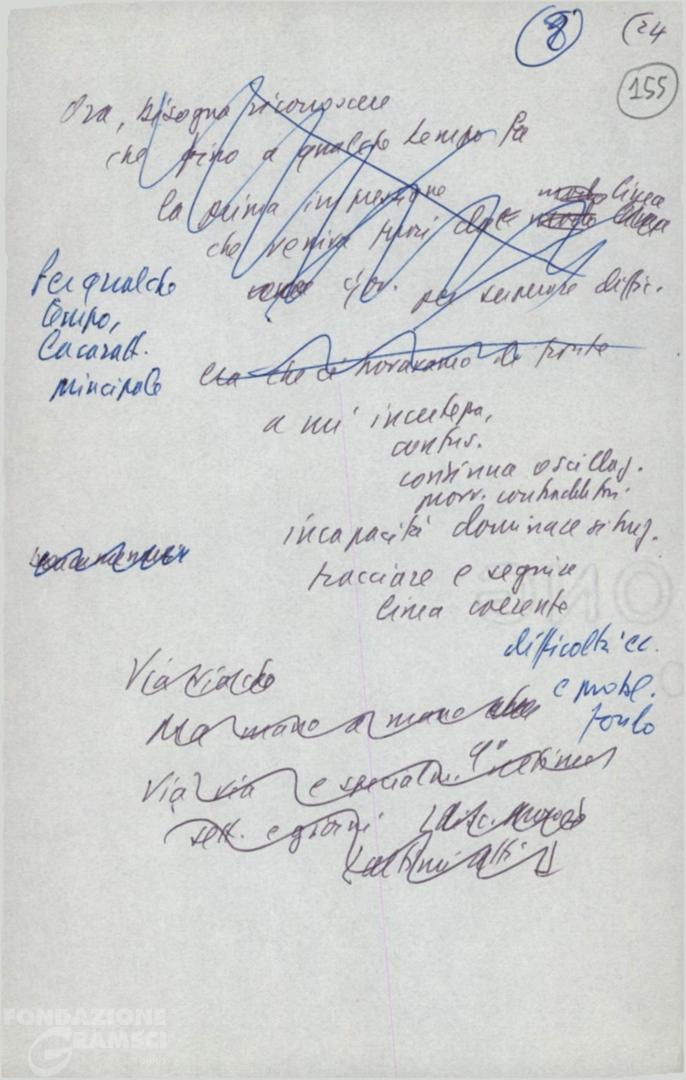 8
(24
155
Ora, bisogna riconoscere
che fino a qualche tempo fa
la prima impressione
linea
che veniva fuori dalle
Gov. per superare diffic.
Per qualche
tempo,
la caratt.
principale
era che ci trovavamo di fronte
a un' incertezza,
confus.
continua oscillaz.
provv. contraddittori
incapacità dominare situaz.
tracciare e seguire
linea coerente
difficoltà ec.
e probl.
fondo
Via via che
Ma mano a mano che
Via via e specialm. ultime
sett. e giorni
ultimi atti
FONDAZIONE
GRAMSCI